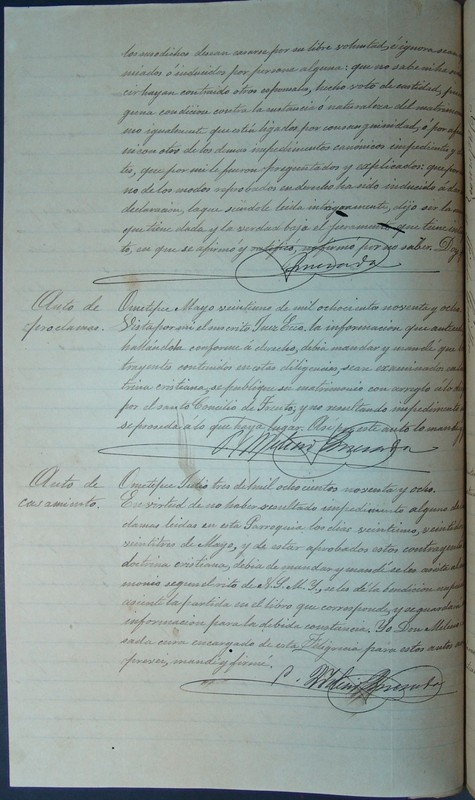 los susodichos desean casarse por su libre voluntad, é ignora sean
miados ó inducidos por persona alguna: que no sabe ni ha
cir hayan contraido otros esponsales, hecho voto de castidad, 
guna condicion contra la sustancia ó naturaleza del matrimonio
mo igualmente que estén ligados por consanguinidad, ó por
en con otro de los demas impedimentos canónicos impedientes y
tes, que por mi le fueron preguntados y explicados: que por
no de los modos reprobados en derecho ha sido inducido á dar
declaracion, la que siéndole leida integramente, dijo ser la
que tiene dada y la verdad bajo el juramento que tiene
to, en que se afirmó y ratificó, no firmó por no saber. Doy
Quesada
Auto de proclamas.
Ometepe Mayo veintiuno de mil ochocientos noventa y ocho.
Vista por mí el suscrito Juez Eco. la informacion que antecede
hallándola conforme á derecho, debia mandar y mandé que los
trayentes contenidos en estas diligencias, sean examinados en
trina cristiana, se publique su matrimonio con arreglo á lo
por el santo Concilio de Trento, y no resultando impedimento
se proceda á lo que haya lugar. Así por este auto lo mandé y
Quesada
Auto de casamiento.
Ometepe Julio tres de mil ochocientos noventa y ocho.
En virtud de no haber resultado impedimento alguno de
clamas leidas en esta Parroquia los dias veintiuno, veintidos
veintitres de Mayo, y de estar aprobados estos contrayentes
doctrina cristiana, debia de mandar y mandé se les asista al
monio segun el rito de N. S. M. Y., se les dé la bendicion nupcial
asiente la partida en el libro que corresponde, y se guarde
informacion para la debida constancia. Yo Don
sada cura encargado de esta Feligresía para estos autos
proveí, mandé y firmé.
Quesada